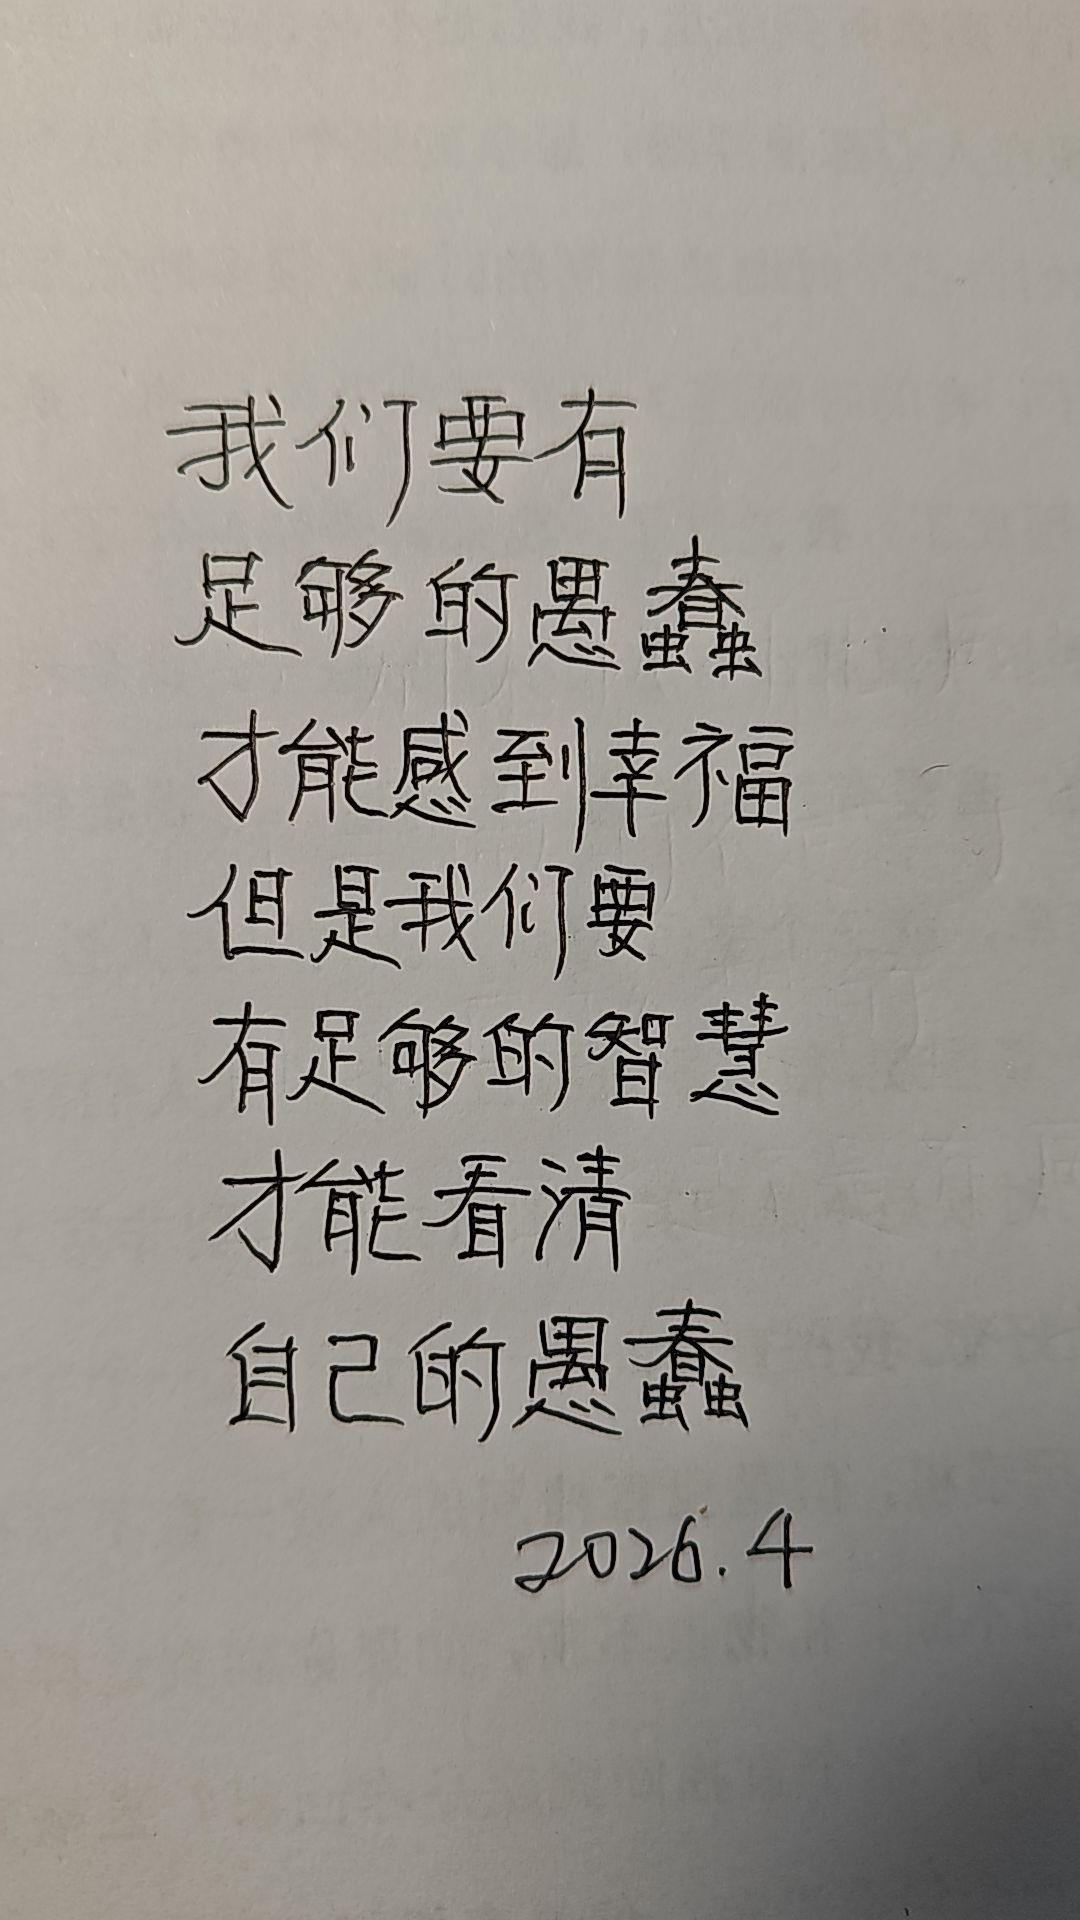 我们要有
足够的愚蠢
才能感到幸福
但是我们要
有足够的智慧
才能看清
自己的愚蠢
2026.4